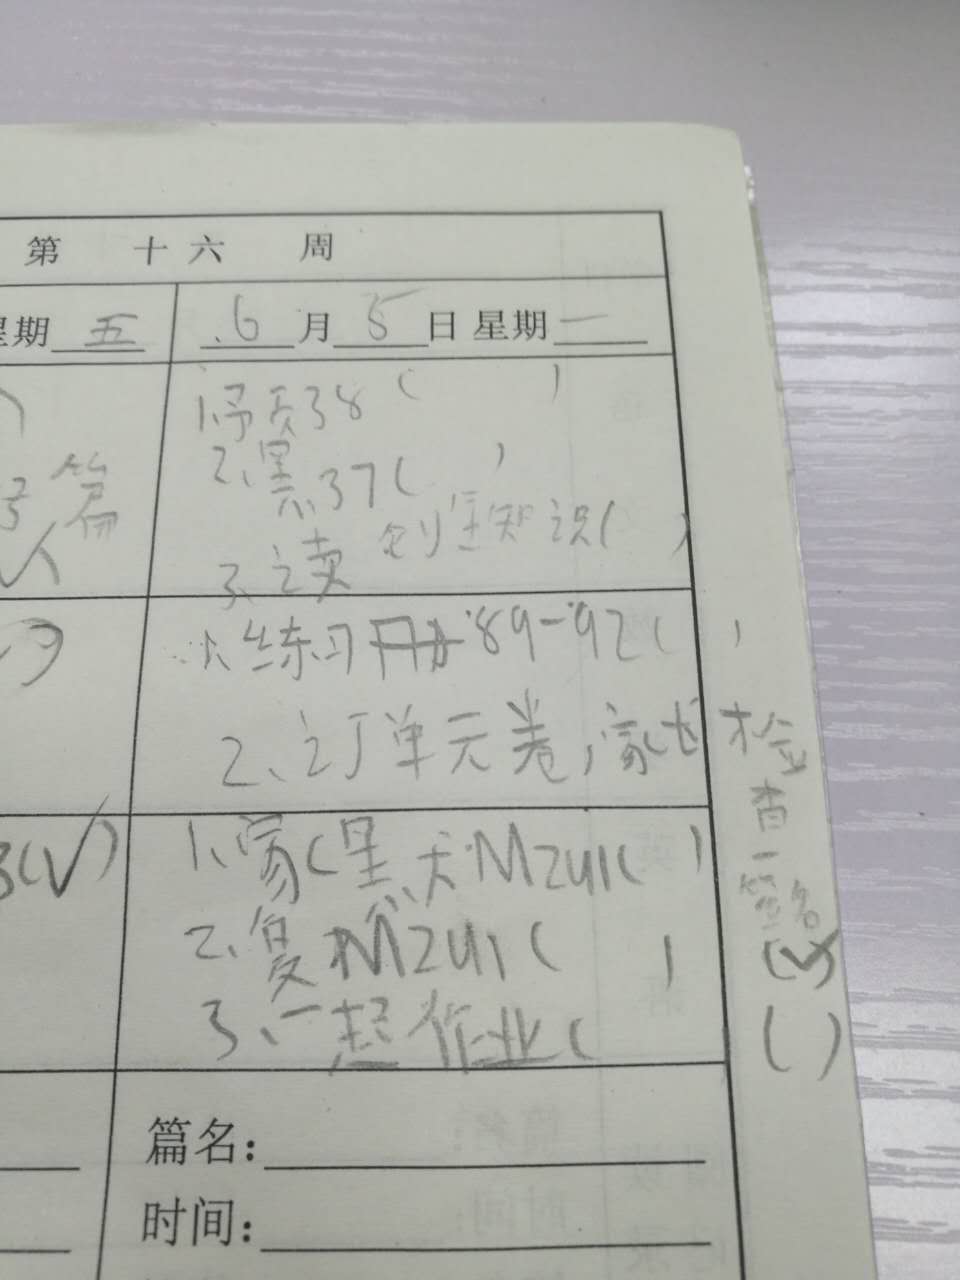 第 十六 周
星期 五
6 月 5 日 星期 一
1.预页38 ( )
2、黑37( )
3、读 创全知识( )
篇
1、练习册89-92( )
2、订单元卷,家长检查签名(√)
3(√)
1、家(黑、天M2U1( )
2、复M2U1( )
3、一起作业( )
( )
篇名:
时间: